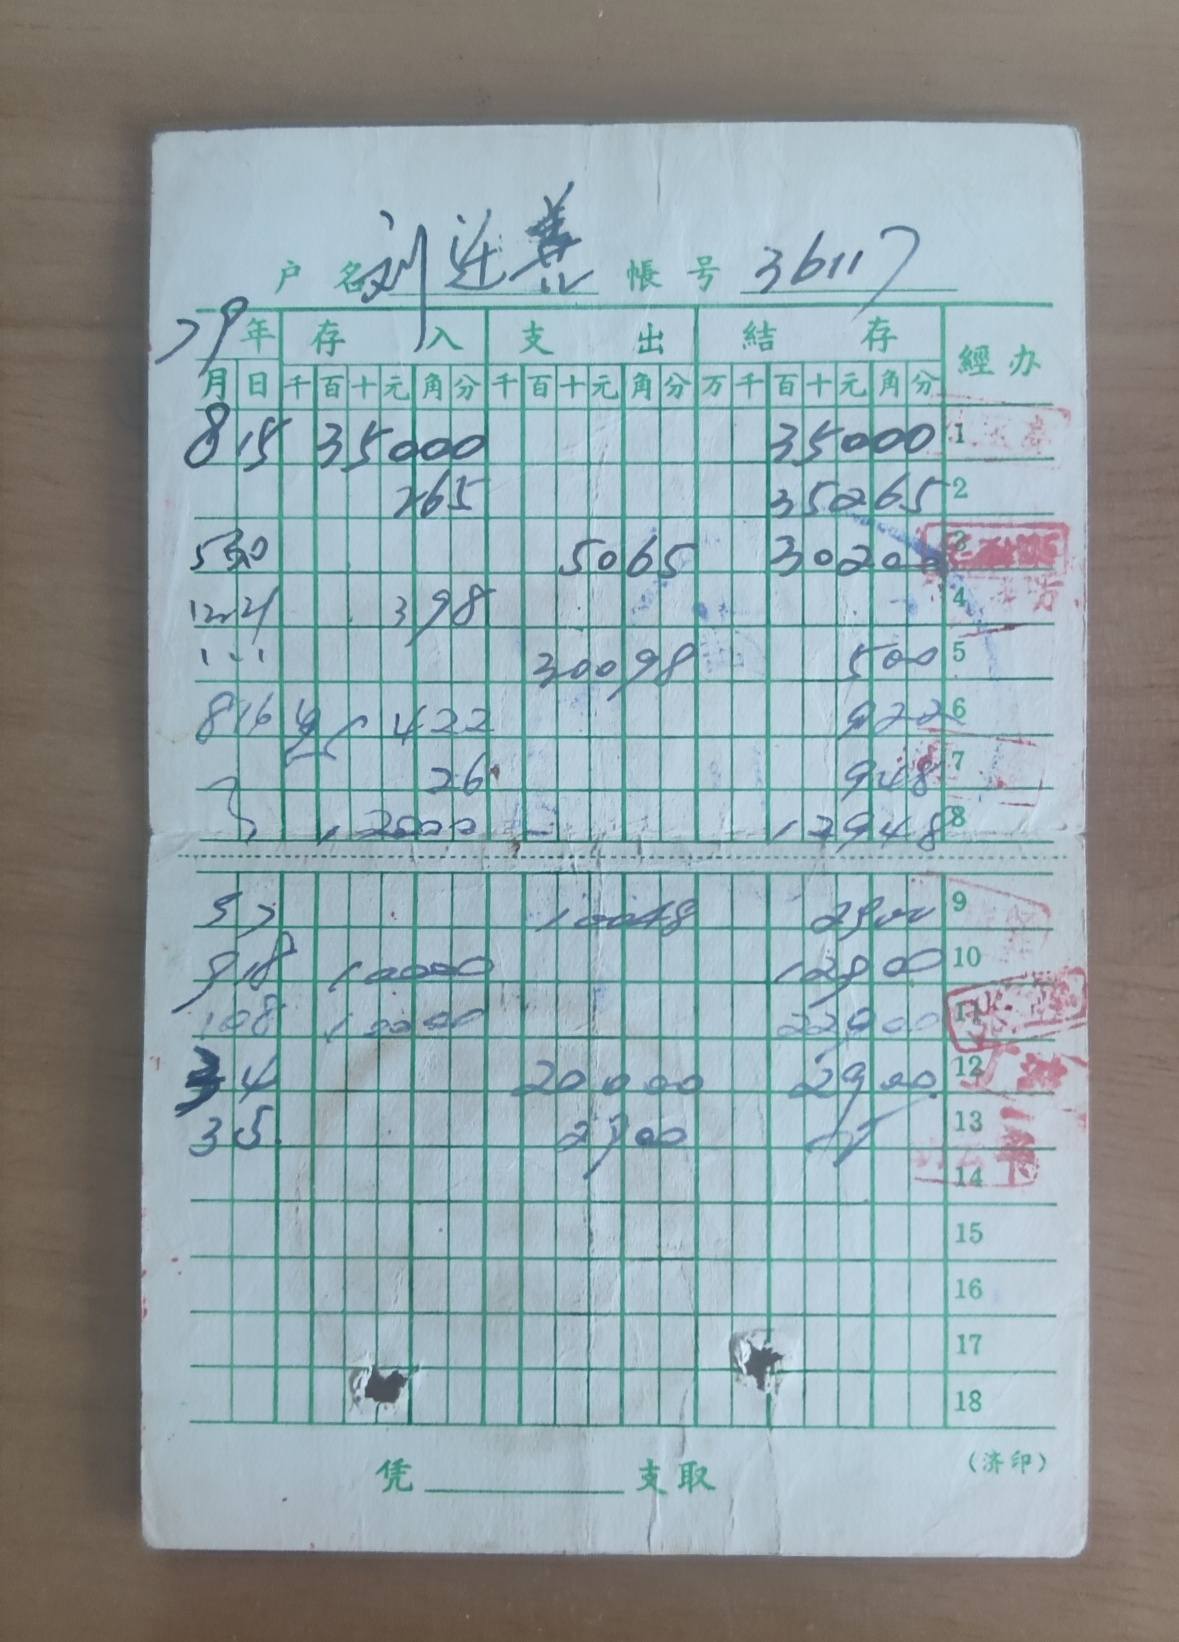 户名 刘廷善 帳号 36117
79年 存入 支出 結存 經办
月 日 千 百 十 元 角 分 千 百 十 元 角 分 万 千 百 十 元 角 分
8 15 35000 35000 1
265 35265 2
5065 30200 3
12 21 398 4
1 1 30098 500 5
8 16 422 922 6
26 948 7
12000 12948 8
5 7 10048 2900 9
9 18 10000 12900 10
10 8 10000 22900 11
4 20000 2900 12
3 5 2900 13
14
15
16
17
18
凭 支取
(济印)